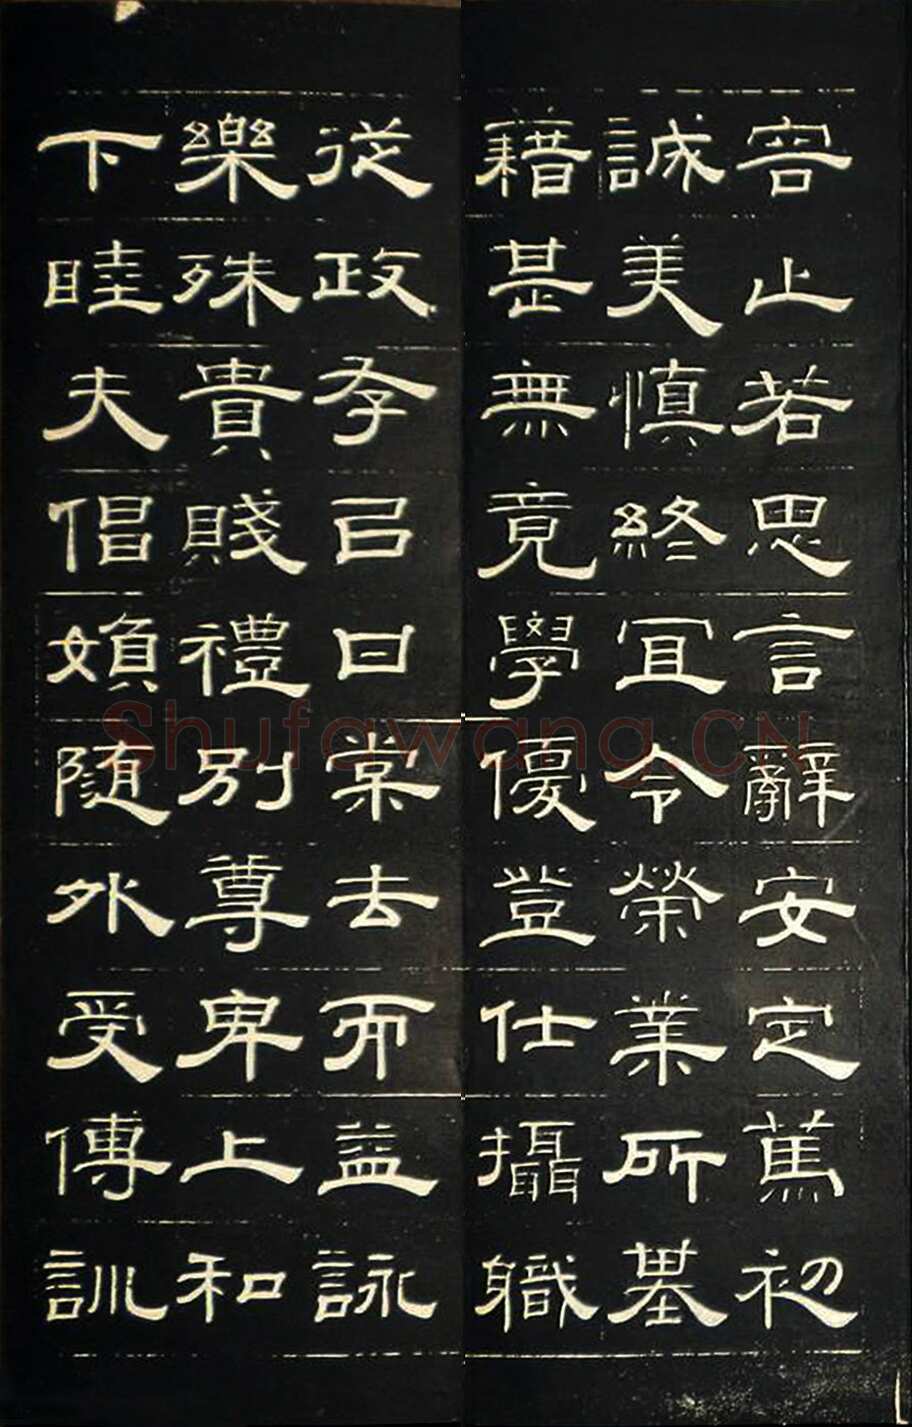 容止若思言辭安定篤初
誠美慎終宜令榮業所基
藉甚無竟學優登仕攝職
從政存以甘棠去而益詠
樂殊貴賤禮別尊卑上和
下睦夫倡媍隨外受傅訓
Shufawang.CN